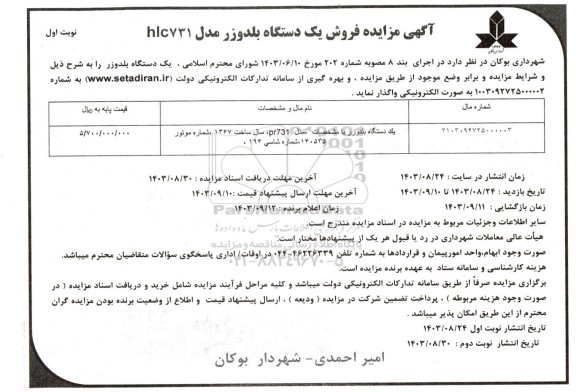 نوبت اول
آگهی مزایده فروش یک دستگاه بلدوزر مدل hlc۷۳۱
شهرداری بوکان در نظر دارد در اجرای بند ۸ مصوبه شماره ۲۰۲ مورخ ۱۴۰۳/۰۶/۱۰ شورای محترم اسلامی ، یک دستگاه بلدوزر را به شرح ذیل
و شرایط مزایده و برابر وضع موجود از طریق مزایده ، و بهره گیری از سامانه تدارکات الکترونیکی دولت (www.setadiran.ir) به شماره
۱۰۰۳۰۹۲۷۲۵۰۰۰۰۰۲ به صورت الکترونیکی واگذار نماید .
شماره مال نام مال و مشخصات قیمت پایه به ریال
۲۱۰۳۰۹۲۷۲۵۰۰۰۰۰۳ یك دستگاه بلدوزر با مشخصات ،مدل pr731، سال ساخت ۱۳۶۷ ،شماره موتور ۵/۷۰۰/۰۰۰/۰۰۰
۱۴۰۵۲۵،شماره شاسی ۱۹۴ ،
زمان انتشار در سایت : ۱۴۰۳/۰۸/۲۴ آخرین مهلت دریافت اسناد مزایده : ۱۴۰۳/۰۸/۳۰
تاریخ بازدید : ۱۴۰۳/۰۸/۲۴ تا ۱۴۰۳/۰۹/۱۰ آخرین مهلت ارسال پیشنهاد قیمت :۱۴۰۳/۰۹/۱۰
زمان بازگشایی : ۱۴۰۳/۰۹/۱۱ زمان اعلام برنده : ۱۴۰۳/۰۹/۱۲
سایر اطلاعات وجزئیات مربوط به مزایده در اسناد مزایده مندرج است.
هیأت عالی معاملات شهرداری در رد یا قبول هر یک از پیشنهادها مختار است.
صورت وجود ابهام،واحد امورپیمان و قراردادها به شماره تلفن ۴۶۲۲۶۲۳۹-۰۴۴ در اوقات اداری پاسخگوی سؤالات متقاضیان محترم میباشد.
هزینه کارشناسی و سامانه ستاد به عهده برنده مزایده است.
برگزاری مزایده صرفاً از طریق سامانه تدارکات الکترونیکی دولت میباشد و کلیه مراحل فرآیند مزایده شامل خرید و دریافت اسناد مزایده ( در
صورت وجود هزینه مربوطه ) ، پرداخت تضمین شرکت در مزایده ( ودیعه ) ، ارسال پیشنهاد قیمت و اطلاع از وضعیت برنده بودن مزایده گران
محترم از این طریق امکان پذیر میباشد .
تاریخ انتشار نوبت اول ۱۴۰۳/۰۸/۲۴
تاریخ انتشار نوبت دوم : ۱۴۰۳/۰۸/۳۰
امیر احمدی- شهردار بوکان
ParsNamadData
۰۲۱-۸۸۳۴۹۶۷۰-۵